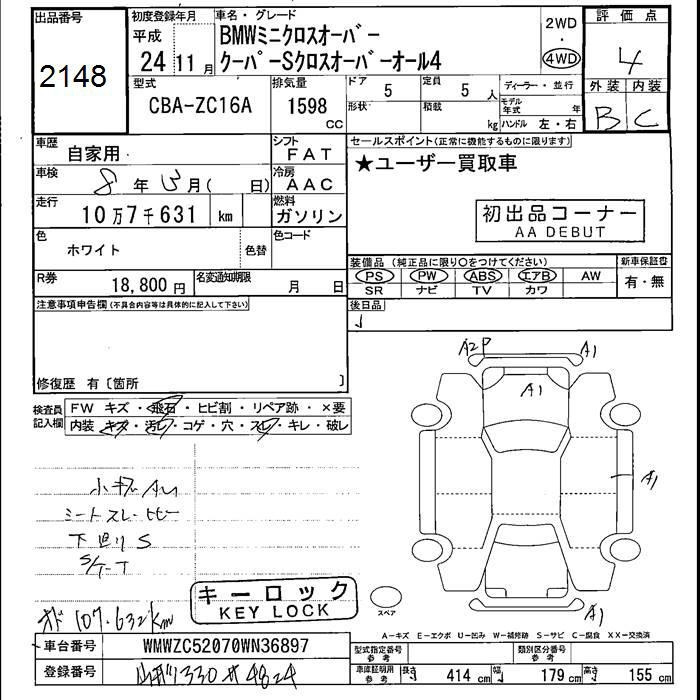 出品番号
2148
初度登録年月
平成
24 11月
車名・グレード
BMWミニクロスオーバー
クーパーSクロスオーバーオール4
2WD
・
4WD
評価点
4
外装 内装
B C
型式
CBA-ZC16A
排気量
1598
CC
ドア 5
形状
定員 5 人
積載 kg
ディーラー・並行
モデル年式 年
ハンドル 左・右
車歴
自家用
シフト
FAT
車検
8年 月( 日)
冷房
AAC
走行
10万7千631 km
燃料
ガソリン
色
ホワイト
色替
色コード
R券
18,800円
名変通知期限
月 日
セールスポイント(正常に機能するものに限ります)
★ユーザー買取車
初出品コーナー
AA DEBUT
装備品(純正品に限り○をつけてください)
新車保証書
PS PW ABS エアB AW
有・無
SR ナビ TV カワ
後日品
注意事項申告欄(不具合内容等は具体的に記入して下さい)
修復歴 有〔箇所 〕
検査員
記入欄
FW キズ・飛石・ヒビ割・リペア跡・×要
内装 キズ・汚レ・コゲ・穴・スレ・キレ・破レ
小キズ
シートスレ
S
A2P
A1
A1
A1
A1
スペア
キーロック
KEY LOCK
107.632km
A-キズ E-エクボ U-凹み W-補修跡 S-サビ C-腐食 XX-交換済
車台番号
WMWZC52070WN36897
登録番号
330 4824
型式指定番号
参考
類別区分番号
参考
車庫証明用
参考
長さ 414 cm
幅 179 cm
高さ 155 cm